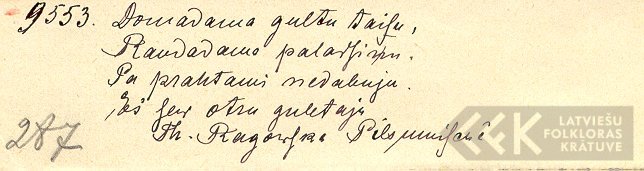 9553. Domadama gultu taisu,
Raudadama paladsiņu.
Pa prahtami nedabuju
Es sew otru guletaju
Th. Ragowska Pilsmuischē
287
LATVIEŠU
FOLKLORAS
KRĀTUVE